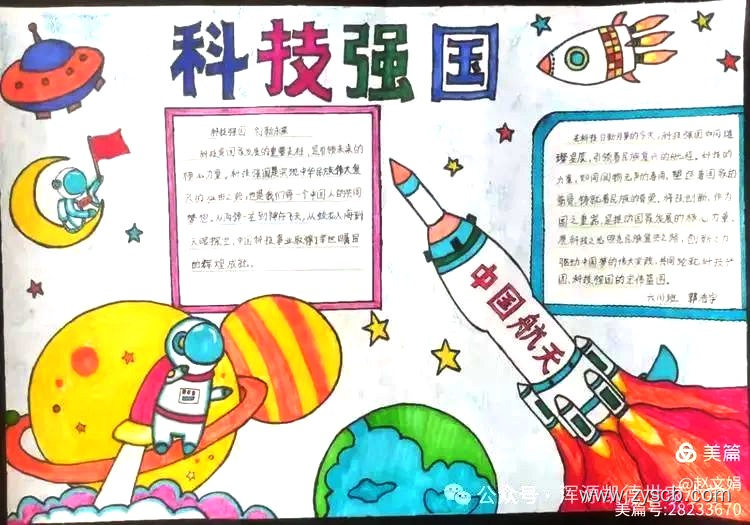 科技强国
科技强国 创新未来
科技是国家发展的重要支柱,是引领未来的
核心力量。科技强国是实现中华民族伟大复
兴的必由之路,也是我们每一个中国人的共同
梦想。从"嫦娥"
天眼探空,中国科技事业取得了举世瞩目
的辉煌成就。
在科技日新月异的今天,科技强国如同璀
璨星辰,引领着民族复兴的航程。科技的
力量,如同润物无声的春雨,塑造着国家的
脊梁,铸就着民族的脊梁。科技创新,作为
国之重器,是推动国家发展的核心力量,
驱动中国梦的伟大实践,共同绘就科技强
国,科技强国的宏伟蓝图。
六(1)班 郭
中国航天
美篇
@赵文娟
公众号·浑源凯德世家
www.jzyscb.com
美篇号:28233670